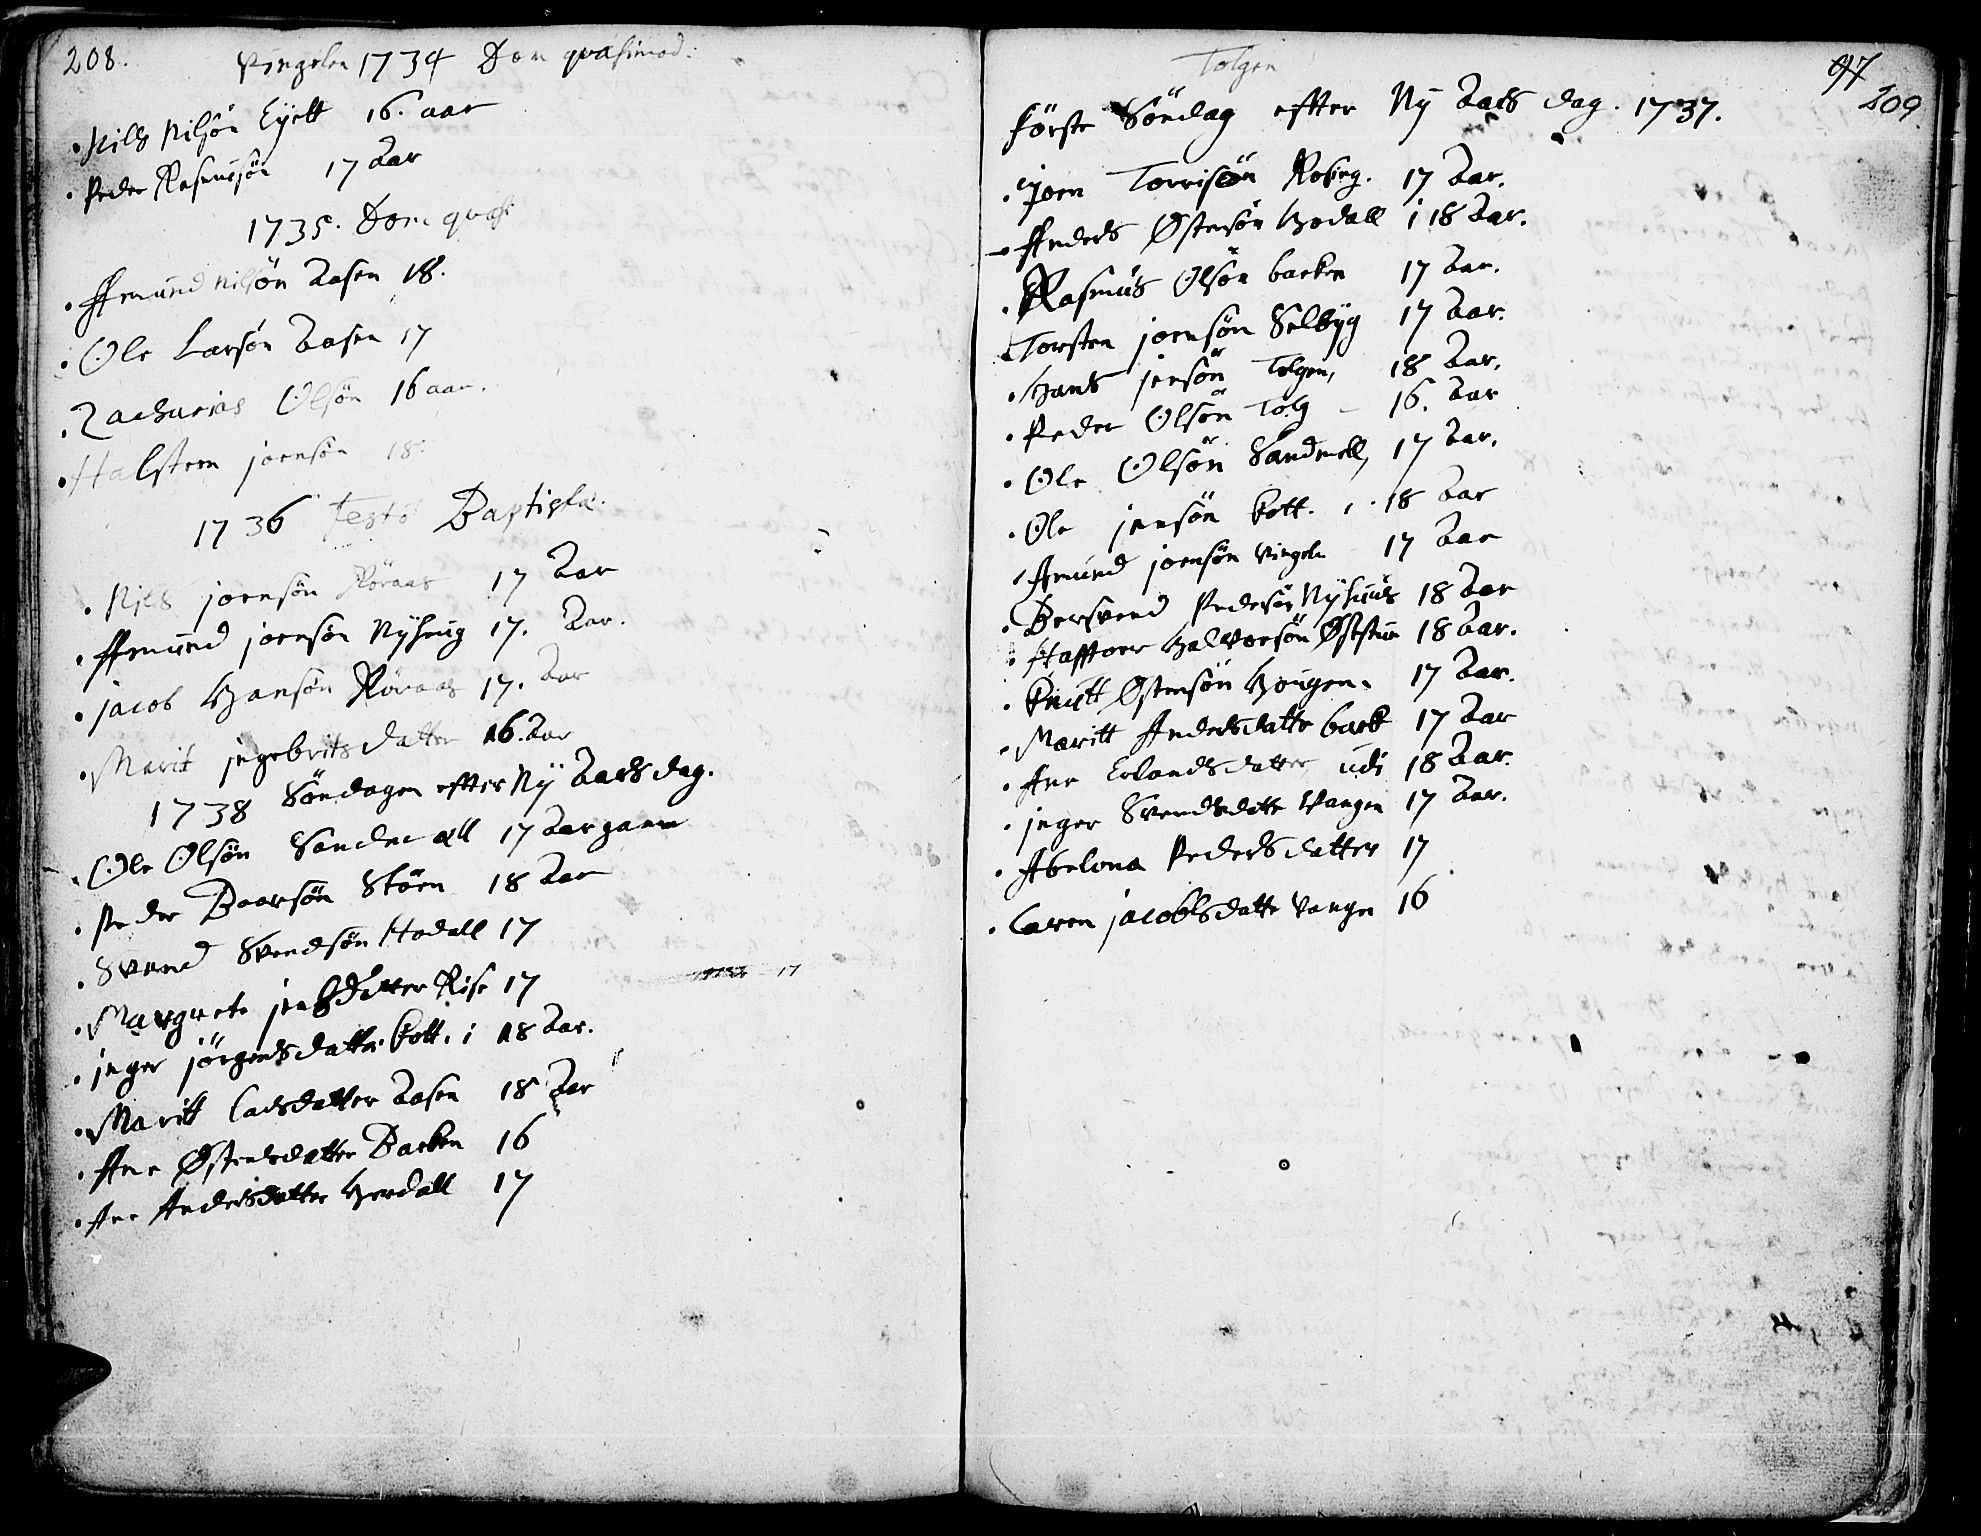 208. Vingelen 1734 Dom quasimod:
Nils Nilsön Eyett 16. aar
Peder Rasmusön 17 Aar
1735. Dom quasi
Amund Nilsön Aasen 18.
Ole Larsön Aasen 17
Zacharias Olsön 16 aar.
Halsten joensön 18.
1736 Festo Baptistæ.
Niels joensön Röraas 17 Aar
Amund joensön Nÿhuug 17. Aar.
jacob Hansön Röraas 17. Aar
Marit jngebritsdatter 16. Aar
1738 Söndagen efter Nÿ Aarsdag.
Ole Olsön Sandmæll 17 Aar gamm
Peder Baarsön Stöen 18 Aar
Svend Svendsön Hodall 17
Margrete jensdatter Rise 17
jnger jörgensdatter Kott. i 18 Aar.
Maritt Larsdatter Aasen 18 Aar
Ane Østensdatter Backen 16
Ane Andersdatter Hordall 17
17
Tolgen
97
209.
Förste Söndag efter Nÿ Aars dag. 1737.
joen Torrisön 17 Aar.
Anders Østensön Hodall i 18 Aar.
Rasmus Olsön backen 17 Aar.
Torsten joensön Selbÿg 17 Aar.
Hans jensön Tolgen, 18 Aar.
Peder Olsön Tolg – 16. Aar
Ole Olsön Sandmell, 17 Aar.
Ole jensön Kott. i 18 Aar
Amund joensön Vingeln 17 Aar
Bersvend Pedersön Nÿhuus 18 Aar
Staffoer Halvorsön Øststue 18 Aar.
Knutt Østensön Hougen. 17 Aar.
Maritt Andersdatte back 17 Aar
Ane Erlandsdatter 18 Aar.
jnger Svendsdatte Vangen 17 Aar.
Abelona Pedersdatter 17
Caren jacobsdatte Vangen 16